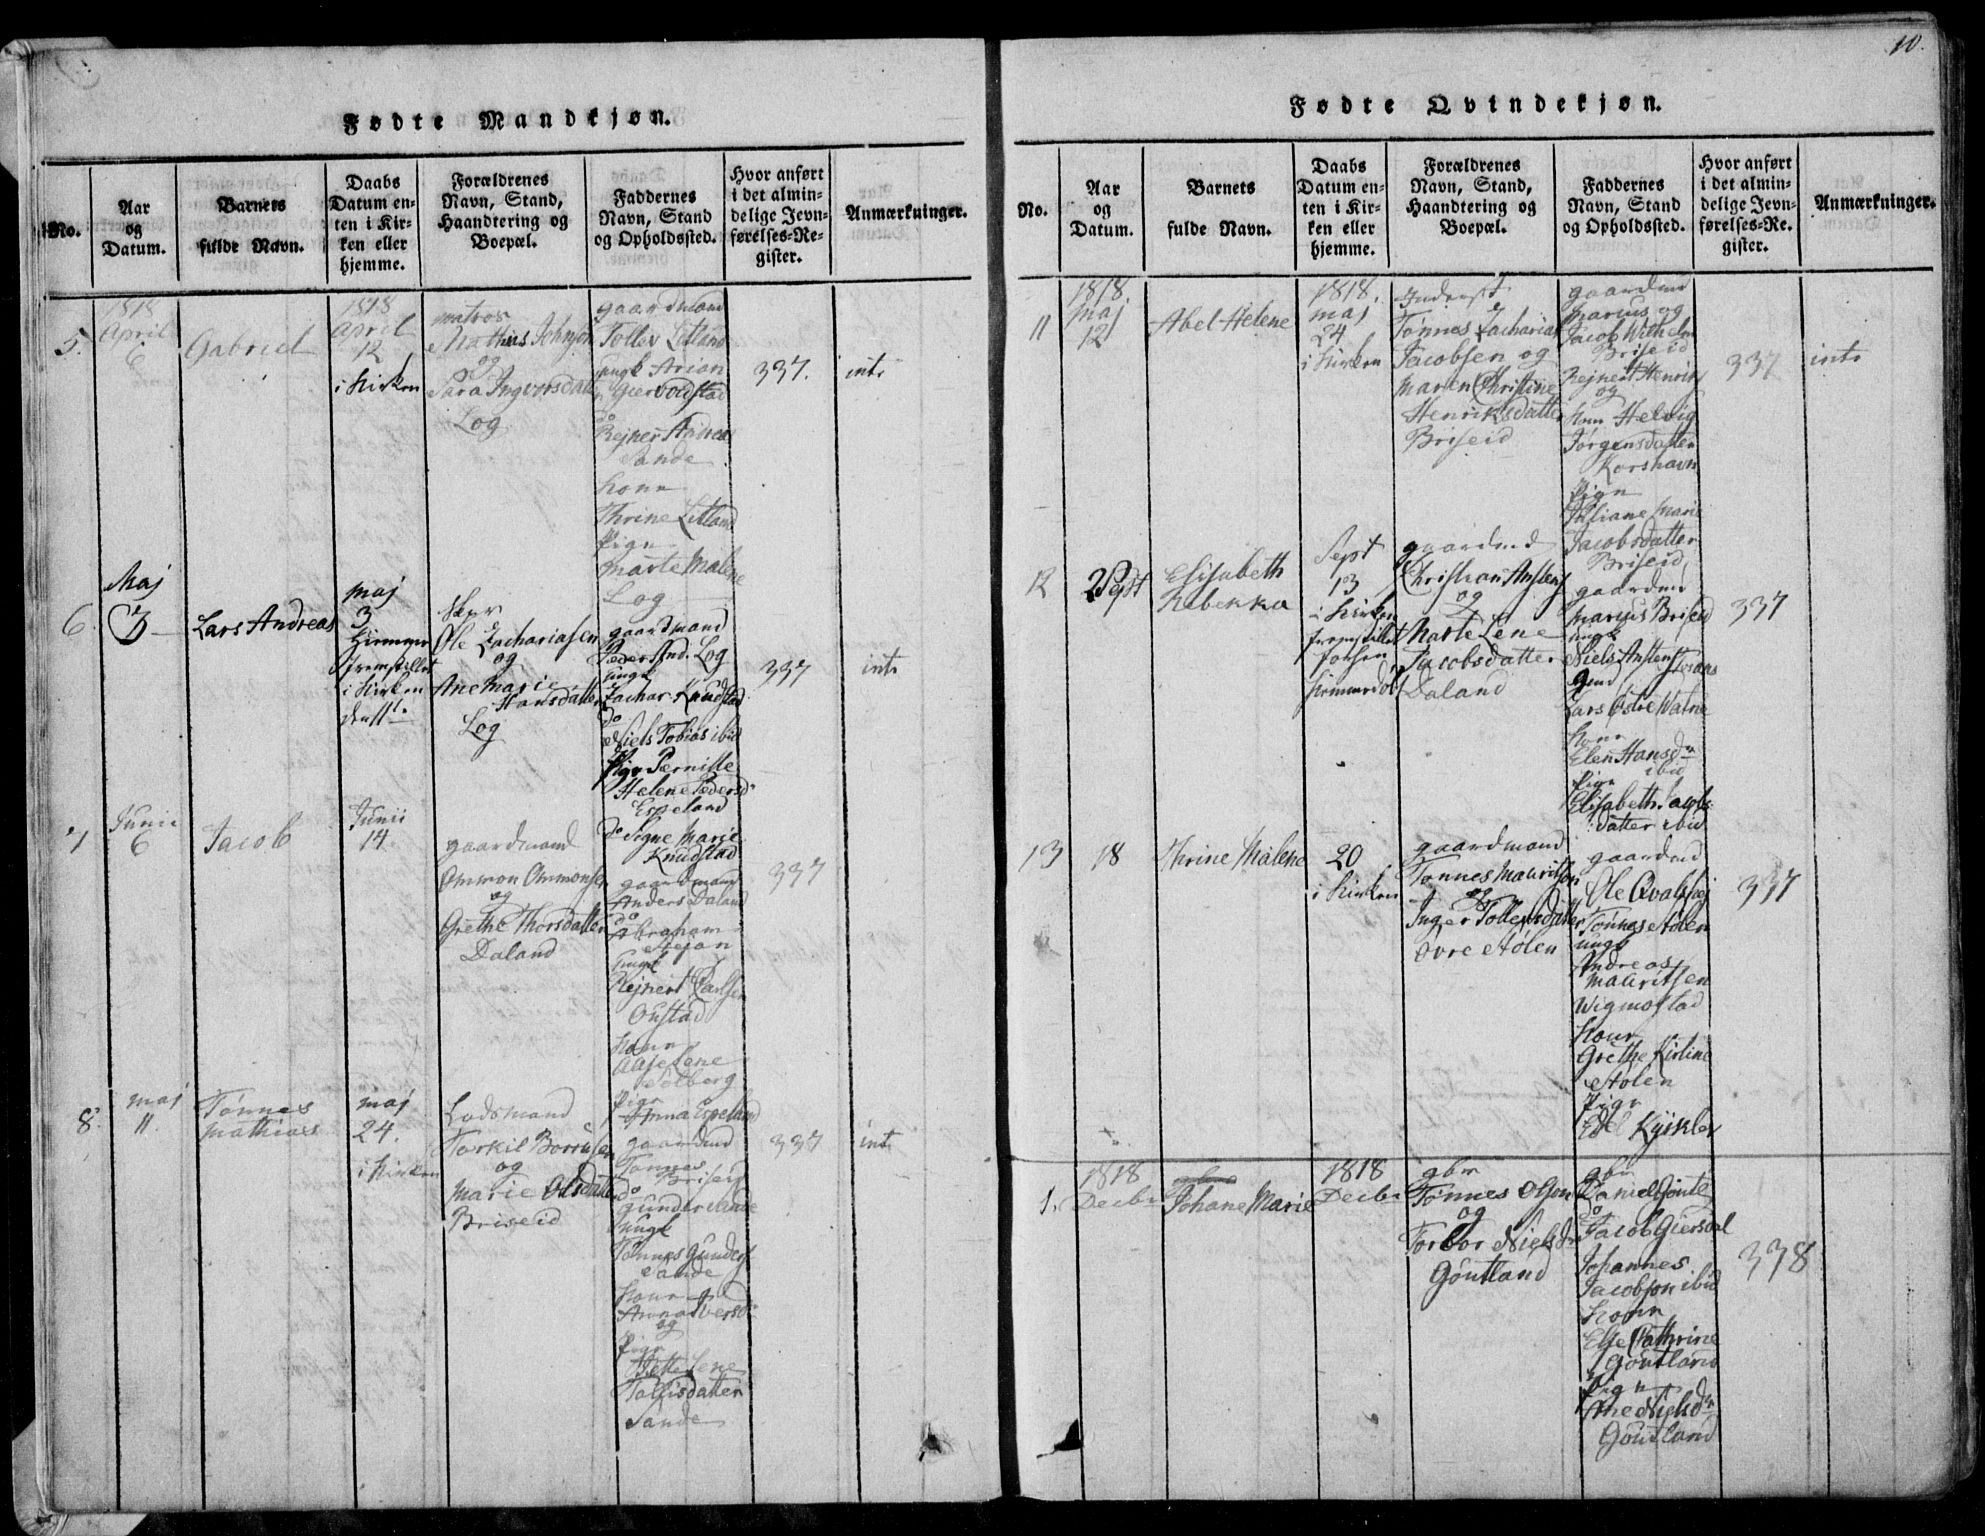 10.
Fødte Mandkjøn.
No.
Aar
og
Datum.
Barnets
fulde Navn.
Daabs
Datum en-
ten i Kir-
ken eller
hjemme.
Forældrenes
Navn, Stand,
Haandtering og
Boepæl.
Faddernes
Navn, Stand
og Opholdssted.
Hvor anført
i det almin-
delige Jevn-
førelses-Re-
gister.
Anmærkninger.
5.
1818
April
6
Gabriel
1818
April
12
i Kirken
matros
Mathias Johnson
og
Sara Ingvorsdatter
Log
gaardmand
Tollev Litland
ungk Arian
Giervoldstad
do
Rejner Andreas
Sande
kone
Thrine Litland
Pige
Marte Malene
Log
337.
intr
6.
Maj
3
Lars Andreas
maj
3
Hjemme
fremstillet
i Kirken
Ole Zachariasen
og
Ane Marie
Hansdatter
Log
gaardmand
Peder And. Log
ungk
Zachar. Knudstad
do
Niels Tobias ibid
Pige Pernille
Helene Pedersd.
Espeland
do Signe Marie
Knudstad
337
intr
7
Junii
6
Jacob
Junii
14.
gaardmand
Ommon Ommonsen
og
Grethe Thorsdatter
Daland
gaardmand
Anders Daland
do
Abraham
ungk
Rejnert
Oustad
kone
Aase Lene
Solberg
Pige
Anna Espeland
337
8.
maj
11.
Tønnes
Mathias
maj
24.
i Kirken
Lodsmand
Torkil Borrusen
og
Marie Olsdatter
Briseid
gaardmd
Tønnes
Briseid
do
Gunder Sande
ungk
Tønnes Gunders.
Sande
kone
Anna Iversd.
og
Pige
Mette Lene
Tollisdatter
Sande
337
intr
Fødte Qvindekjøn.
No.
Aar
og
Datum.
Barnets
fulde Navn.
Daabs
Datum en-
ten i Kir-
ken eller
hjemme.
Forældrenes
Navn, Stand,
Haandtering og
Boepæl.
Faddernes
Navn, Stand
og Opholdssted.
Hvor anført
i det almin-
delige Jevn-
førelses-Re-
gister.
Anmærkninger.
11
1818.
Maj
12
Abel Helene
1818.
maj
24
i Kirken
Inderst
Tønnes Zacharias
Jacobsen og
Maren Christine
Henriksdatter
Briseid
gaardmd
Marcus og
Jacob Wilhelm
Briseid
Rejnert Henrik
og
kone Helvig
Jørgensdatter
Korshavn
Pige
Juliane Marie
Jacobsdatter
Briseid
337
intr
12
2 Sept
Elisabeth
Rebekka
Sept
13
i Kirken
fremstillet
forhen
hiemmedøbt
gaardmd
Christian Anstens.
og
Marte Lene
Jacobsdatter
Daland
gaardmd
Marcus Briseid
ungk
Niels Anstens.
Lars Østre Warne
kone
Elen Hansdr
ibid
Pige
Elisabeth Jacobs
datter ibid
337
13
18
Thrine Malene
20
i Kirken
gaardmand
Tønnes Mauritson
og
Inger Tollevsdatter
Øvre Aølen
gaardmd
Ole Qvalshej
Tønnes Aølen
ungk
Andreas
Mauritsen
Wigmostad
kone
Grethe Kirstine
Aølen
Pige
337
1.
1818
Decbr
Johane Marie
1818
Decbr
gbr
Tønnes Olson
og
Torbor Nielsdr
Gøutland
gbr
Daniel
do
Jacob Giersdal
Johannes
Jacobson ibid
kone
Else Cathrine
Gøutland
Pige
Ane Nielsdr
Gøutland
338